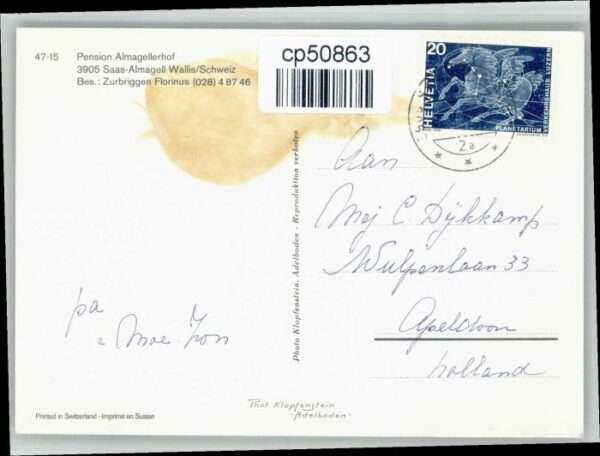 47-15 Pension Almagellerhof
3905 Saas-Almagell Wallis/Schweiz
Bes.: Zurbriggen Florinus (028) 4 87 46
cp50863
20
HELVETIA
PLANETARIUM
VERKEHRSHAUS LUZERN
2a
Photo Klopfenstein, Adelboden - Reproduktion verboten
Aan
Mej C Dijkkamp
Wulpenlaan 33
Apeldoon
Holland
pa
Moe
Thot. Klopfenstein
-Adelboden-
Printed in Switzerland - Imprimé en Suisse